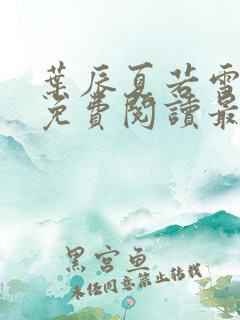 葉辰夏若雪
免費閱讀最
黑宮魚
未经同意禁止转载